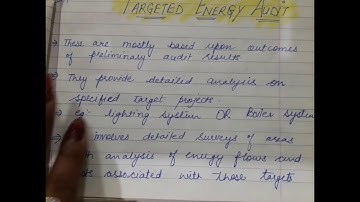 TARGETED ENERGY AUDIT
→ These are mostly based upon outcomes
of preliminary audit results
→ They provide detailed analysis on
specified target projects.
→ eg:- lighting system OR Boiler System
involves detailed surveys of areas
analysis of energy flows and
associated with those targets